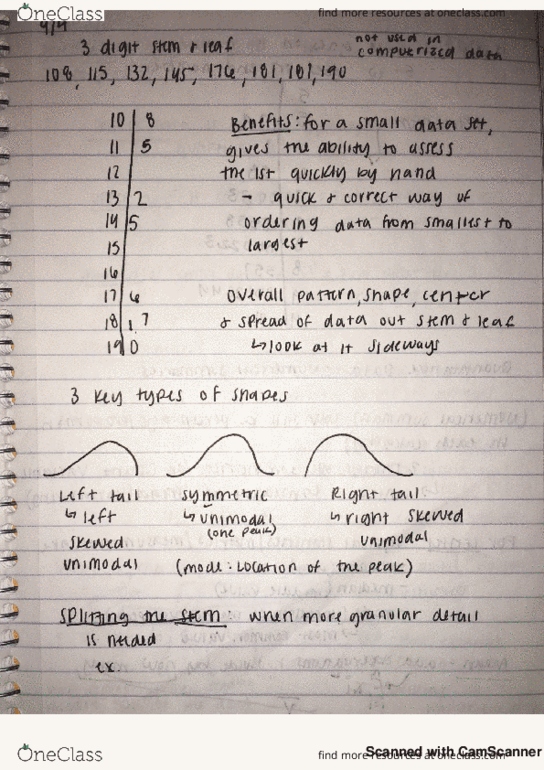 OneClass
find more resources at oneclass.com
9/4
3 digit stem & leaf
not used in
computerized data
108, 115, 132, 145, 176, 181, 187, 190
10 | 8
11 | 5
12 |
13 | 2
14 | 5
15 |
16 |
17 | 6
18 | 1, 7
19 | 0
Benefits: for a small data set,
gives the ability to assess
the 1st quickly by hand
- quick & correct way of
ordering data from smallest to
largest
overall pattern, shape, center
& spread of data out stem & leaf
↳ look at it sideways
3 key types of shapes
Left tail
↳ left
skewed
unimodal
symmetric
↳ unimodal
(one peak)
Right tail
↳ right skewed
unimodal
(mode: location of the peak)
splitting the stem: when more granular detail
is needed
ex.
OneClass
find more resources at oneclass.com
Scanned with CamScanner